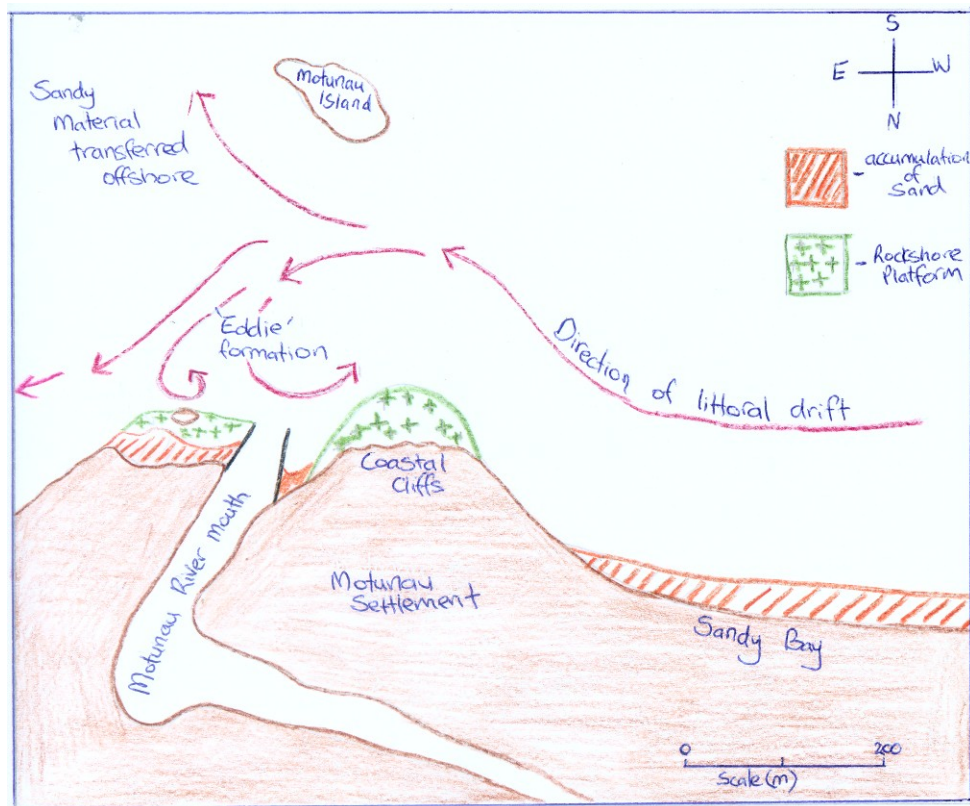 Sandy
Material
transferred
offshore
Motunau
Island
S
E
W
N
- accumulation
of
Sand
- Rockshore
Platform
'Eddie'
formation
Direction of littoral drift
Coastal
Cliffs
Motunau River Mouth
Motunau
Settlement
Sandy Bay
0
200
Scale (m)